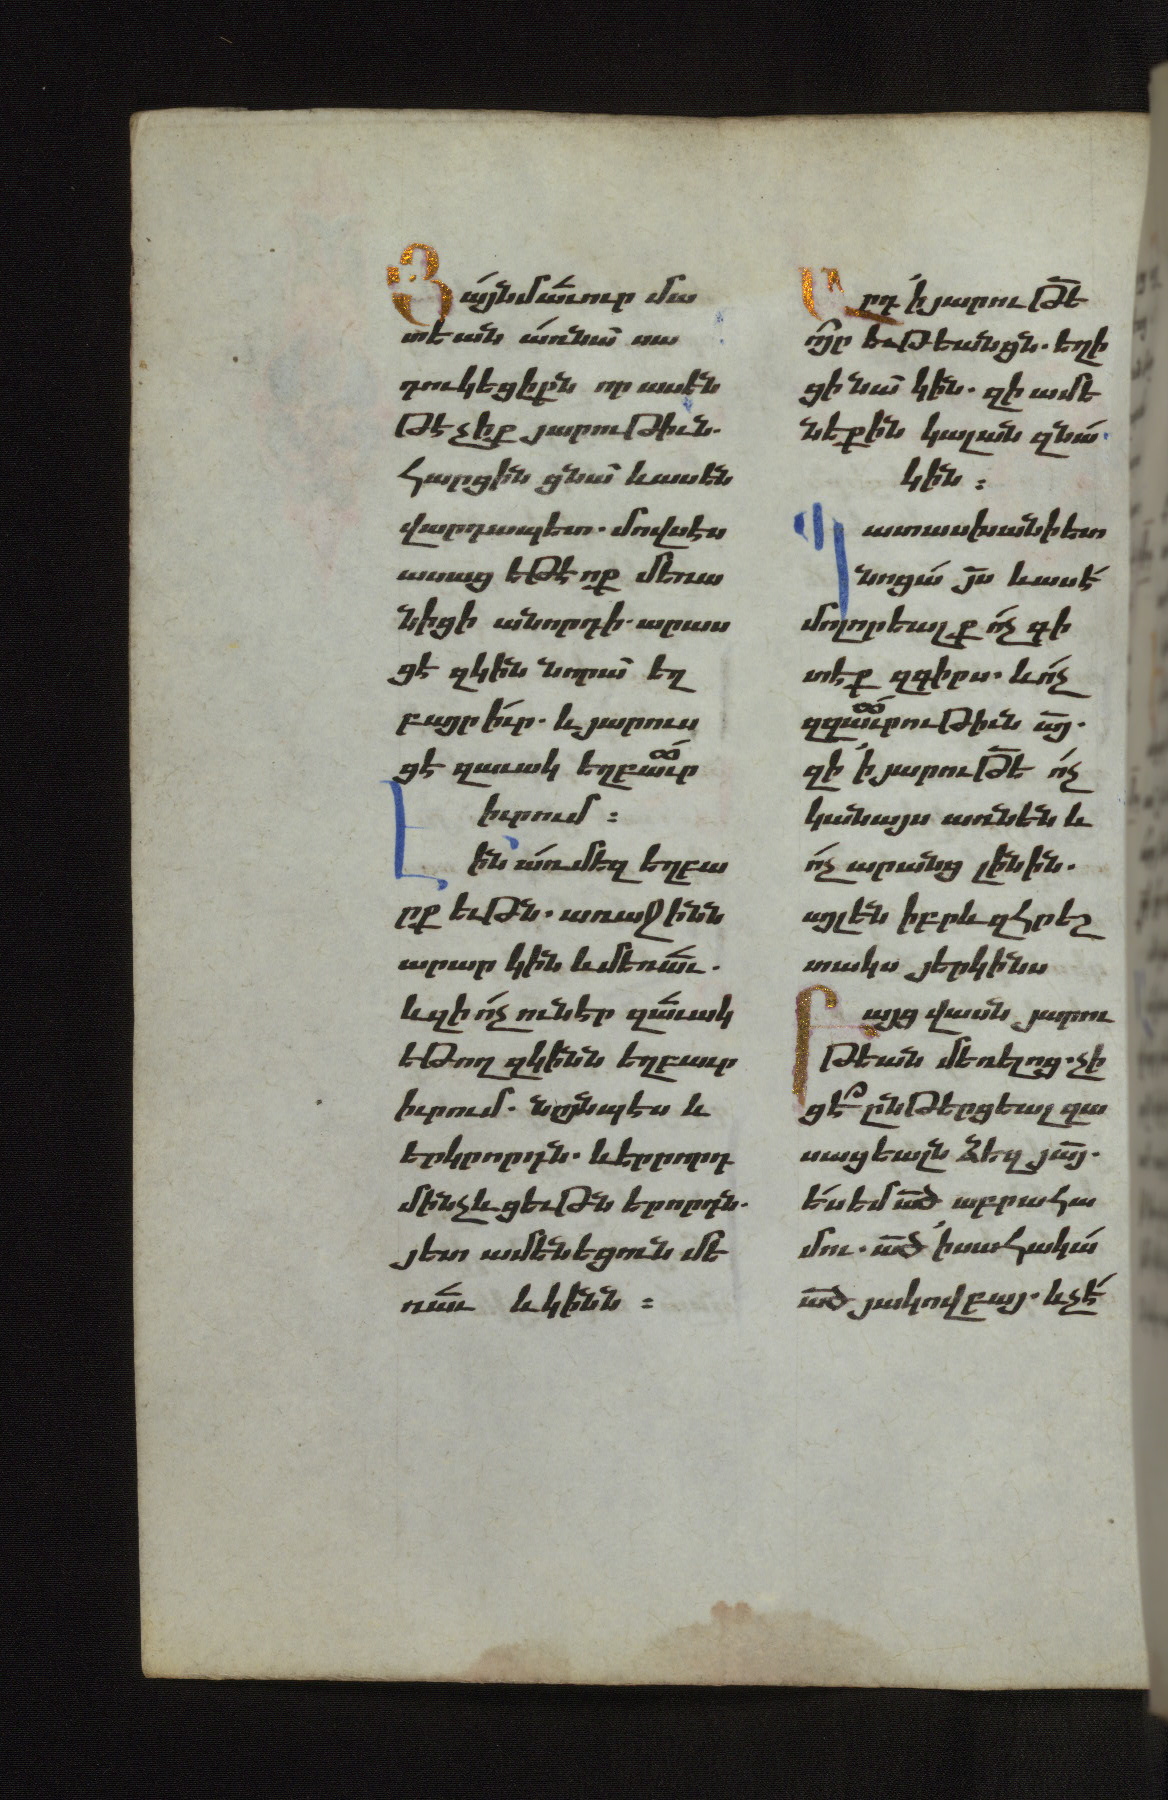 Յայնմաւուր մա
տեան առնա սա
դուկեցիքն որ ասեն
թէ չիք յարութիւն.
հարցին ցնա և ասեն
վարդապետ. մովսէս
ասաց եթէ ոք մեռա
նիցի անորդի. արաս
ցէ զկին նորա եղ
բայր իւր. և յարուս
ցէ զաւակ եղբաւր
իւրում :
Էին առ մեզ եղբա
րք եւթն. առաջինն
արար կին և մեռաւ.
և զի ոչ ուներ զաւակ
եթող զկինն եղբաւր
իւրում. նոյնպես և
երկրորդն. և երրորդ
մինչև ցեւթն երորդն.
յետ ամենեցուն մե
ռաւ և կինն :
Արդ ի յարութե
ոյր եւթեանցն. եղի
ցի նա կին. զի ամե
նեքին կալան զնա
կին :
Պատասխանի ետ
նոցա յս և ասէ
մոլորեալ ք ոչ գի
տէք զգիրս. և ոչ
զզաւրութիւն այ.
զի ի յարութե ոչ
կանայս առնեն և
ոչ արանց լինին.
այլ են իբրև զհրեշ
տակս յերկինս
Բայց վասն յարու
թեան մեռելոց. չի
ցէ ընթերցեալ զա
սացեալն ձեզ յայ.
ես եմ ած աբրահա
մու. ած իսահակա
ած յակովբայ. և չէ